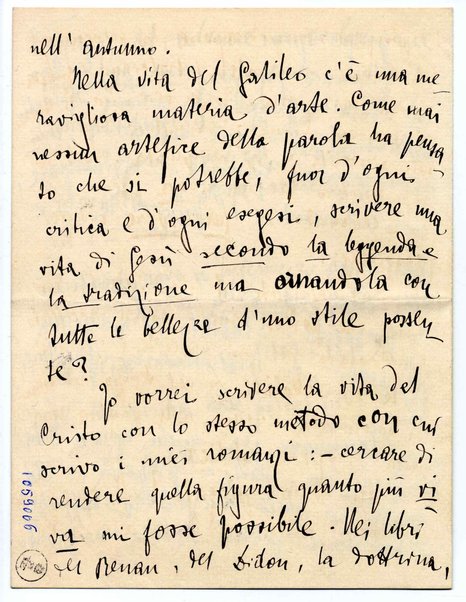 nell'autunno.
Nella vita del Galileo c'è una me
ravigliosa materia d'arte. Come mai
nessun artefice della parola ha pensa
to che si potrebbe, fuor d'ogni
critica e d'ogni esegesi, scrivere una
vita di Gesù secondo la leggenda e
la tradizione ma ornandola con
tutte le bellezze d'uno stile possen
te?
Io vorrei scrivere la vita del
Cristo con lo stesso metodo con cui
scrivo i miei romanzi: – cercare di
rendere quella figura quanto più vi
va mi fosse possibile. Nei libri
del Renan, del Didon, la dottrina,
1059006